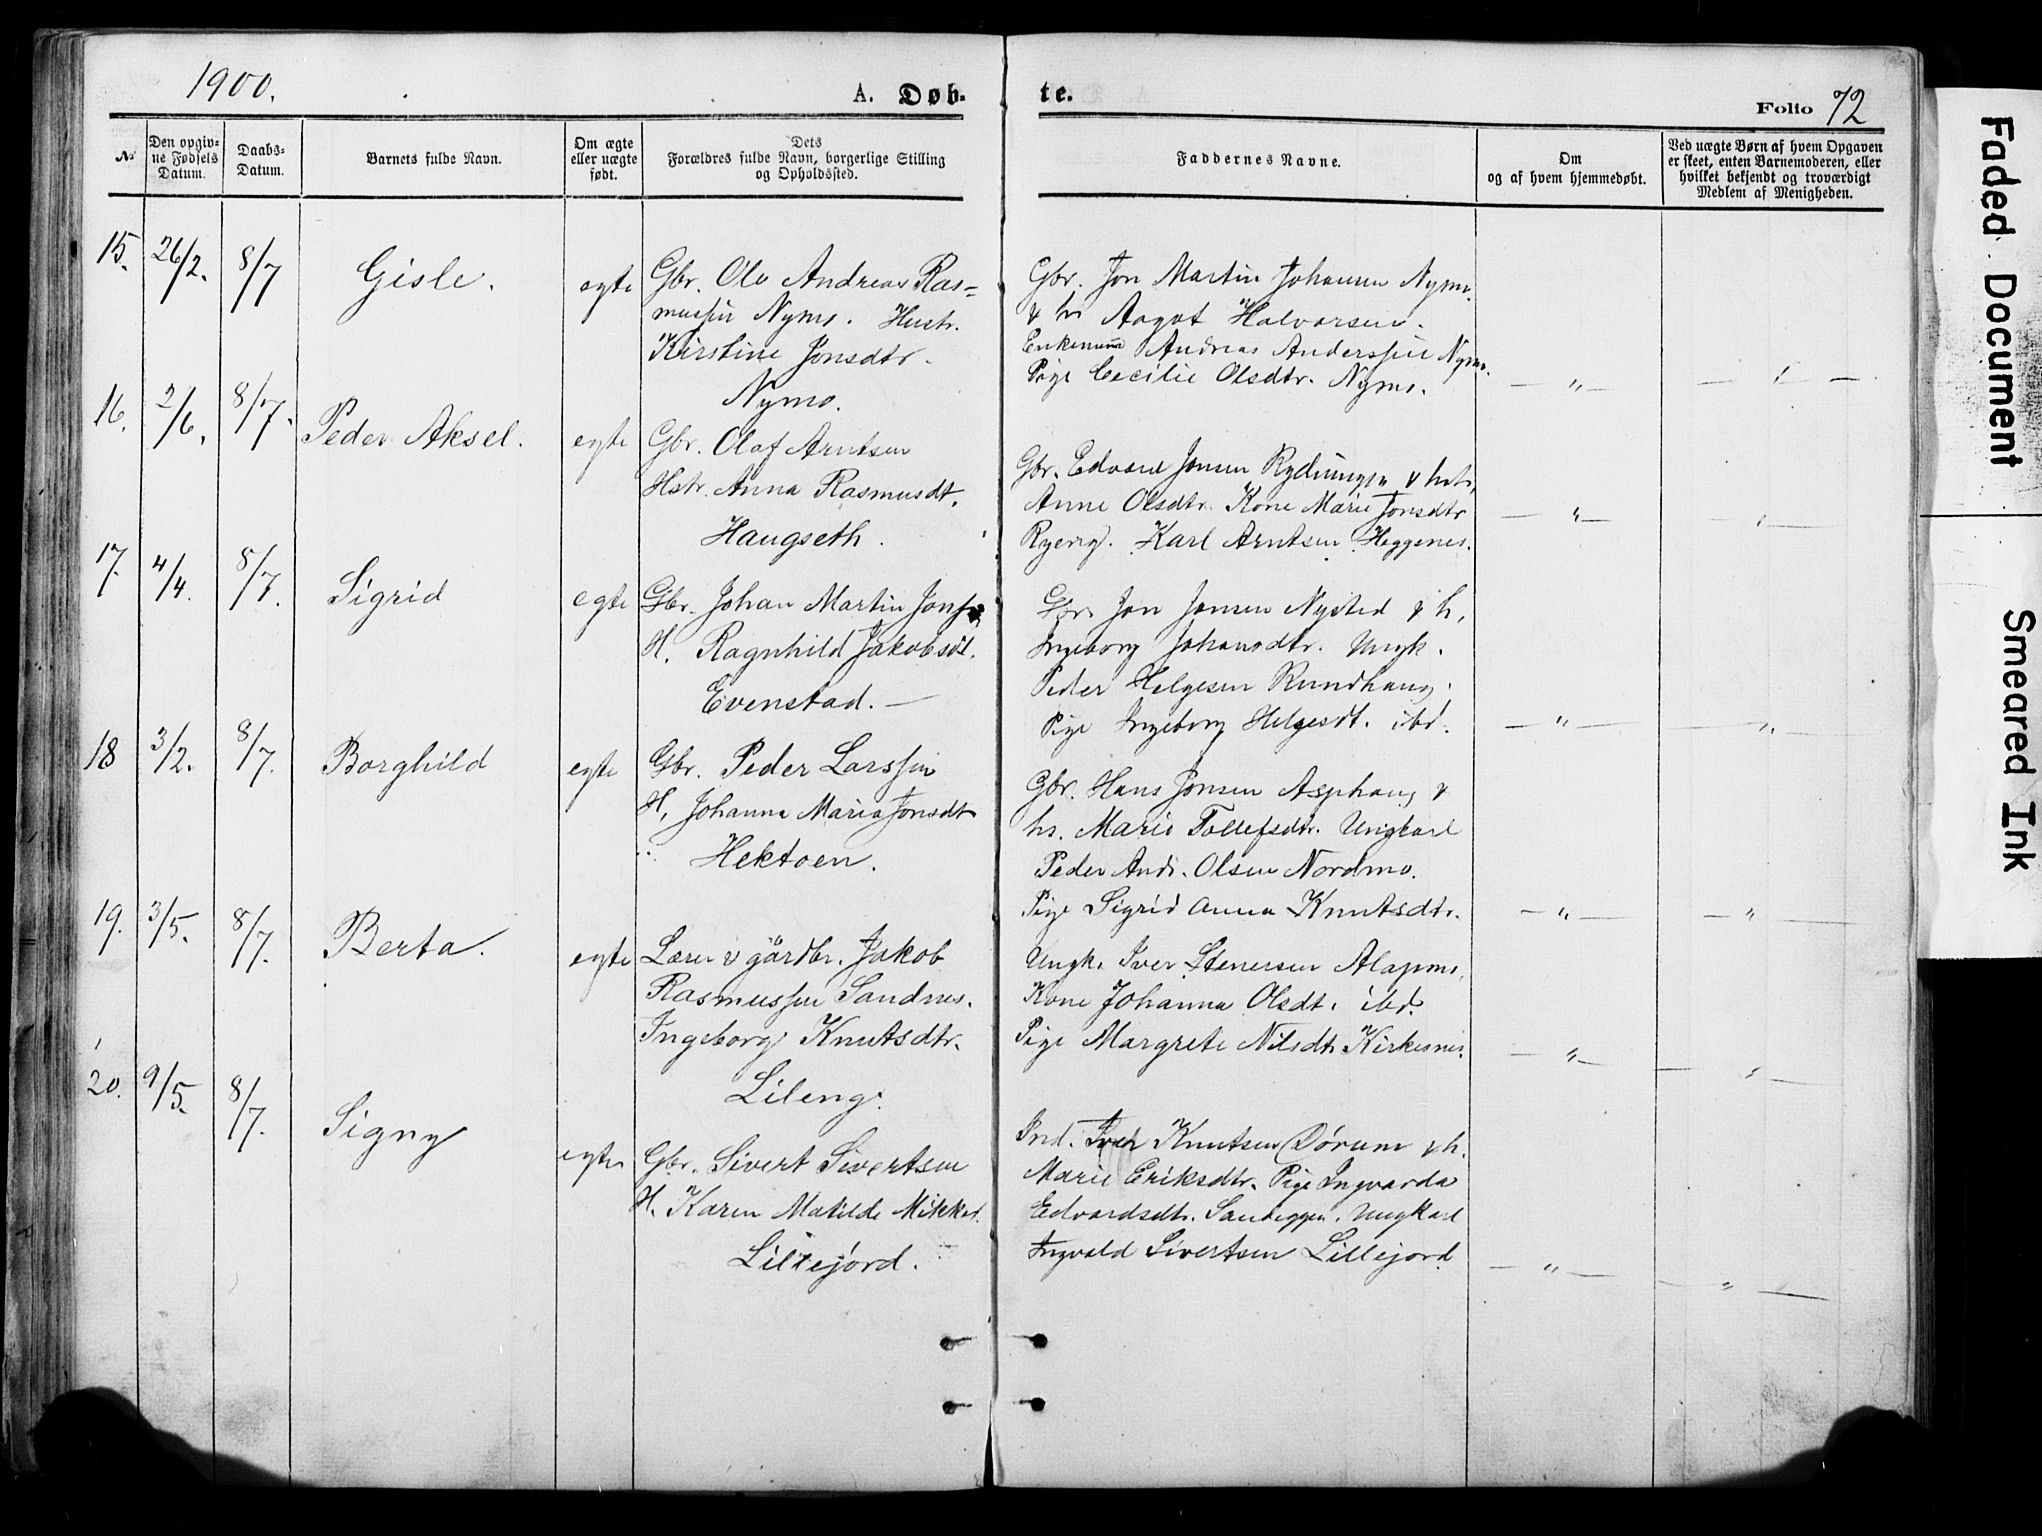 1900.
A. Døb-
te.
Folio 72
№
Den opgiv-
ne Fødsels
Datum.
Daabs-
Datum.
Barnets fulde Navn.
Om ægte
eller uægte
født.
Dets
Forældres fulde Navn, borgerlige Stilling
og Opholdssted.
Faddernes Navne.
Om
og af hvem hjemmedøbt.
Ved uægte Børn af hvem Opgaven
er skeet, enten Barnemoderen, eller
hvilket bekjendt og troværdigt
Medlem af Menigheden.
15. 26/2. 8/7 Gisle. egte
Gbr. Ole Andreas Ras=
mussen Nymo. Hustr.
Kirstine Jonsdtr.
Nymo.
Gbr. Jon Martin Johansen Nymo.
& hs Aagot Halvorsen.
Enkemand Andreas Anderssen Nymo.
Pige Cecilie Olsdtr. Nymo.
— " — — " —
16. 2/6. 8/7. Peder Aksel. egte
Gbr. Olaf Arntsen
Hstr. Anna Rasmusdt.
Haugseth.
Gbr. Edvard Jonsen & hst.
Anne Olsdtr. Kone Marie Jonsdtr
Karl Arntsen Heggenes.
— " — — " —
17. 4/4. 8/7. Sigrid egte
Gbr. Johan Martin
H. Ragnhild Jakobsdt.
Evenstad. —
Gbr. Jon Jonsen Nysted & h.
Ingeborg Johansdtr. Ungk.
Peder Helgesen Rundhaug.
Pige Ingeborg Helgesdt. ibd.
— " — — " —
18 3/2. 8/7. Borghild egte
Gbr. Peder Larssen
H. Johanna Maria Jonsdt
Hektoen.
Gbr. Hans Jonsen Asphaug &
hs. Marie Tollefsdtr. Ungkarl
Peder Andr. Olsen Nordmo.
Pige Sigrid Anna Knutsdtr.
— " — — " —
19. 3/5. 8/7. Berta. egte
Lærer & gårdbr. Jakob
Rasmussen Sandnes.
Ingeborg Knutsdtr.
Lileng.
Ungk. Iver Stenersen
Kone Johanna Olsdt. ibd.
Pige Margrete Nilsdtr Kirkesnes.
— " — — " —
20. 9/5. 8/7. Signy egte
Gbr. Sivert Sivertsen
H. Karen Matilde Mikkel.
Lillejord.
Ind. Iver Knutsen Dørum & h.
Marie Eriksdtr. Pige Ingvarda
Edvardsdtr. Ungkarl
Ingvald Sivertsen Lillejord
— " — — " —
Faded Document
Smeared Ink